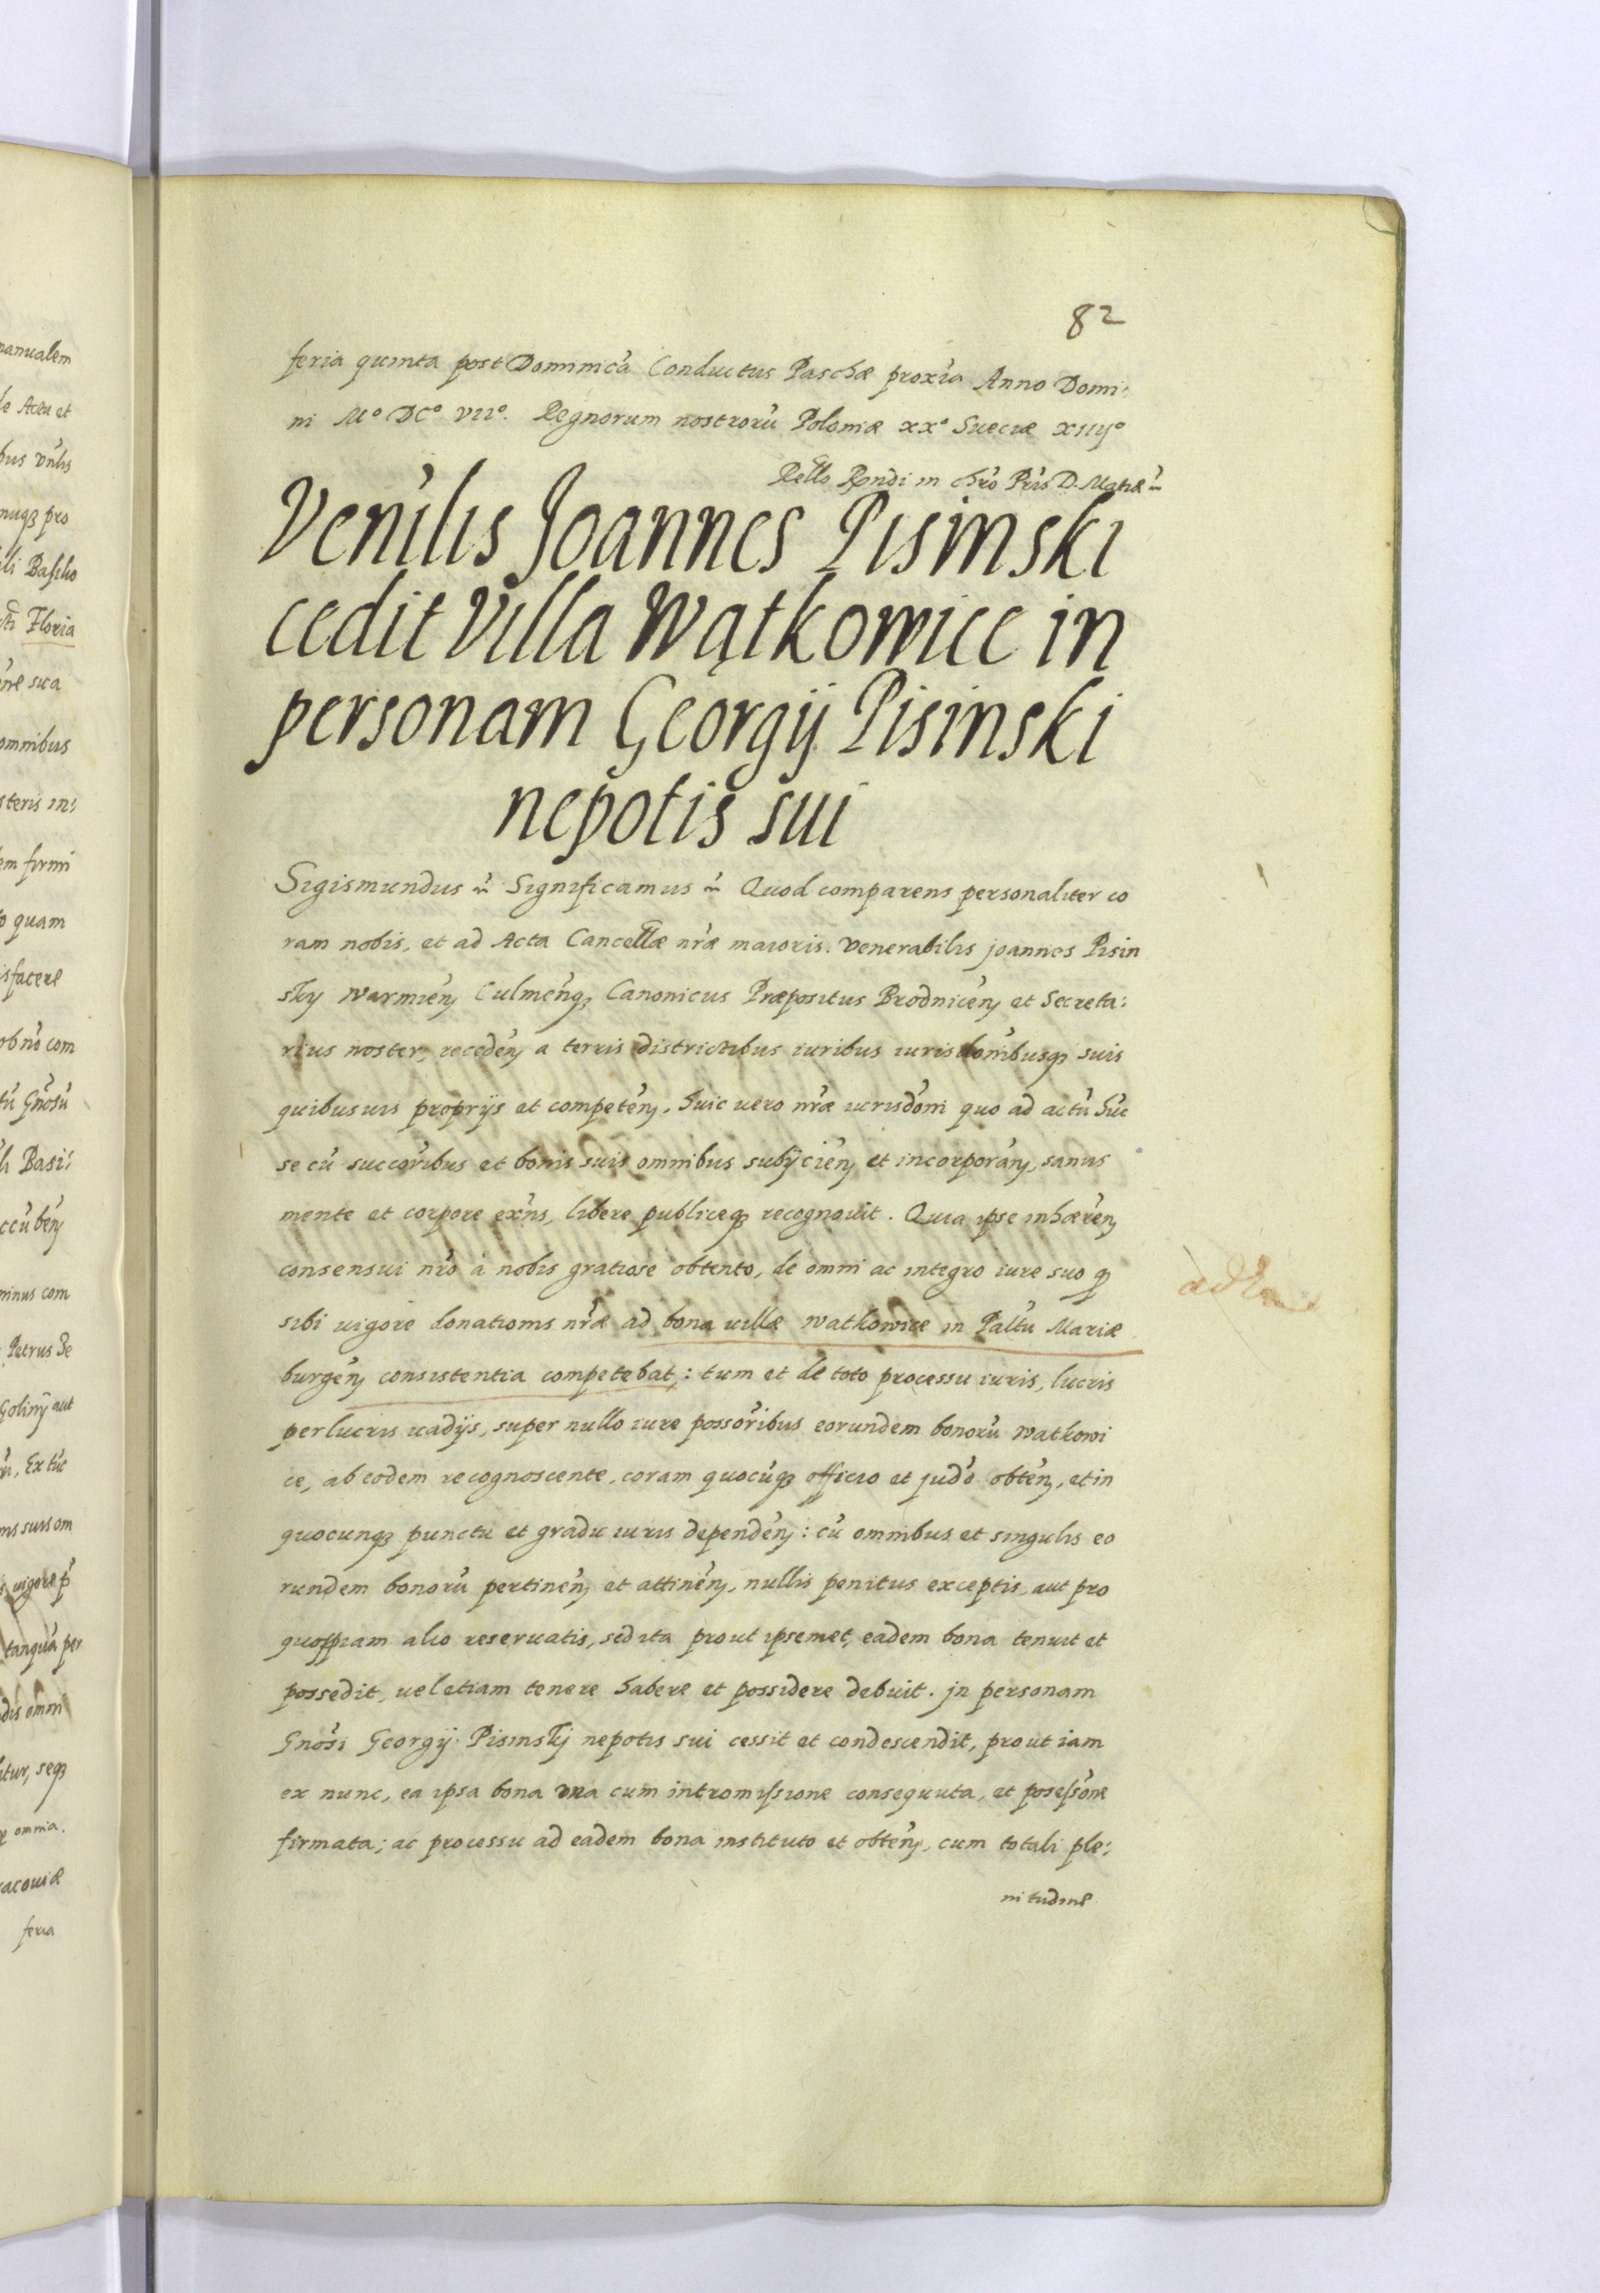 82
feria quinta post Dominicā Conductus Paschæ proxīa Anno Domi:
ni Mº DCº VIIº. Regnorum nostrorū Poloniæ XXº Sueciæ XIIIJº
Rello Rndi in Chrō Pris D. Mathiæ
Venīlis Joannes Pisinski
cedit villa Wątkowice in
personam Georgij Pisinski
nepotis sui
Sigismundus Significamus Quod comparens personaliter co
ram nobis, et ad Acta Cancellæ nr̄æ maioris. Venerabilis Joannes Pisin
sky Warmień Culmeńq₃ Canonicus Præpositus Brodniceń et Secreta:
rius noster, recedeń a terris districtibus iuribus iurisdonibusq₃ suis
quibusuis proprijs et competeń, huic uero nr̄æ iurisdoni quo ad actū hūc
se cū succoribus et bonis suis omnibus subijcień et incorporań, sanus
mente et corpore exns, libere publiceq₃ recognouit. Quia ipse inhæreń
consensui nrō à nobis gratiose obtento, de omni ac integro iure suo q₃
sibi uigore donationis nr̄æ ad bona uillæ Watkowice in Paltū Mariæ
burgeń consistentia competebat: tum et de toto processu iuris, lucris
perlucris uadijs, super nullo iure possoribus eorundem bonorū Watkowi
ce, ab eodem recognoscente, coram quocūq₃ officio et judō obteń, et in
quocunq₃ punctu et gradu iuris dependeń: cū omnibus et singulis eo
rundem bonorū pertineń et attineń, nullis penitus exceptis, aut pro
quopiam alio reseruatis, sed ita prout ipsemet, eadem bona tenuit et
possedit, uel etiam tenere habere et possidere debuit. Jn personam
Gnōsi Georgij Pisinskj nepotis sui cessit et condescendit, prout iam
ex nunc, ea ipsa bona una cum intromissione consequuta, et posessone
firmata; ac processu ad eadem bona instituto et obteń, cum totali ple:
nitudine